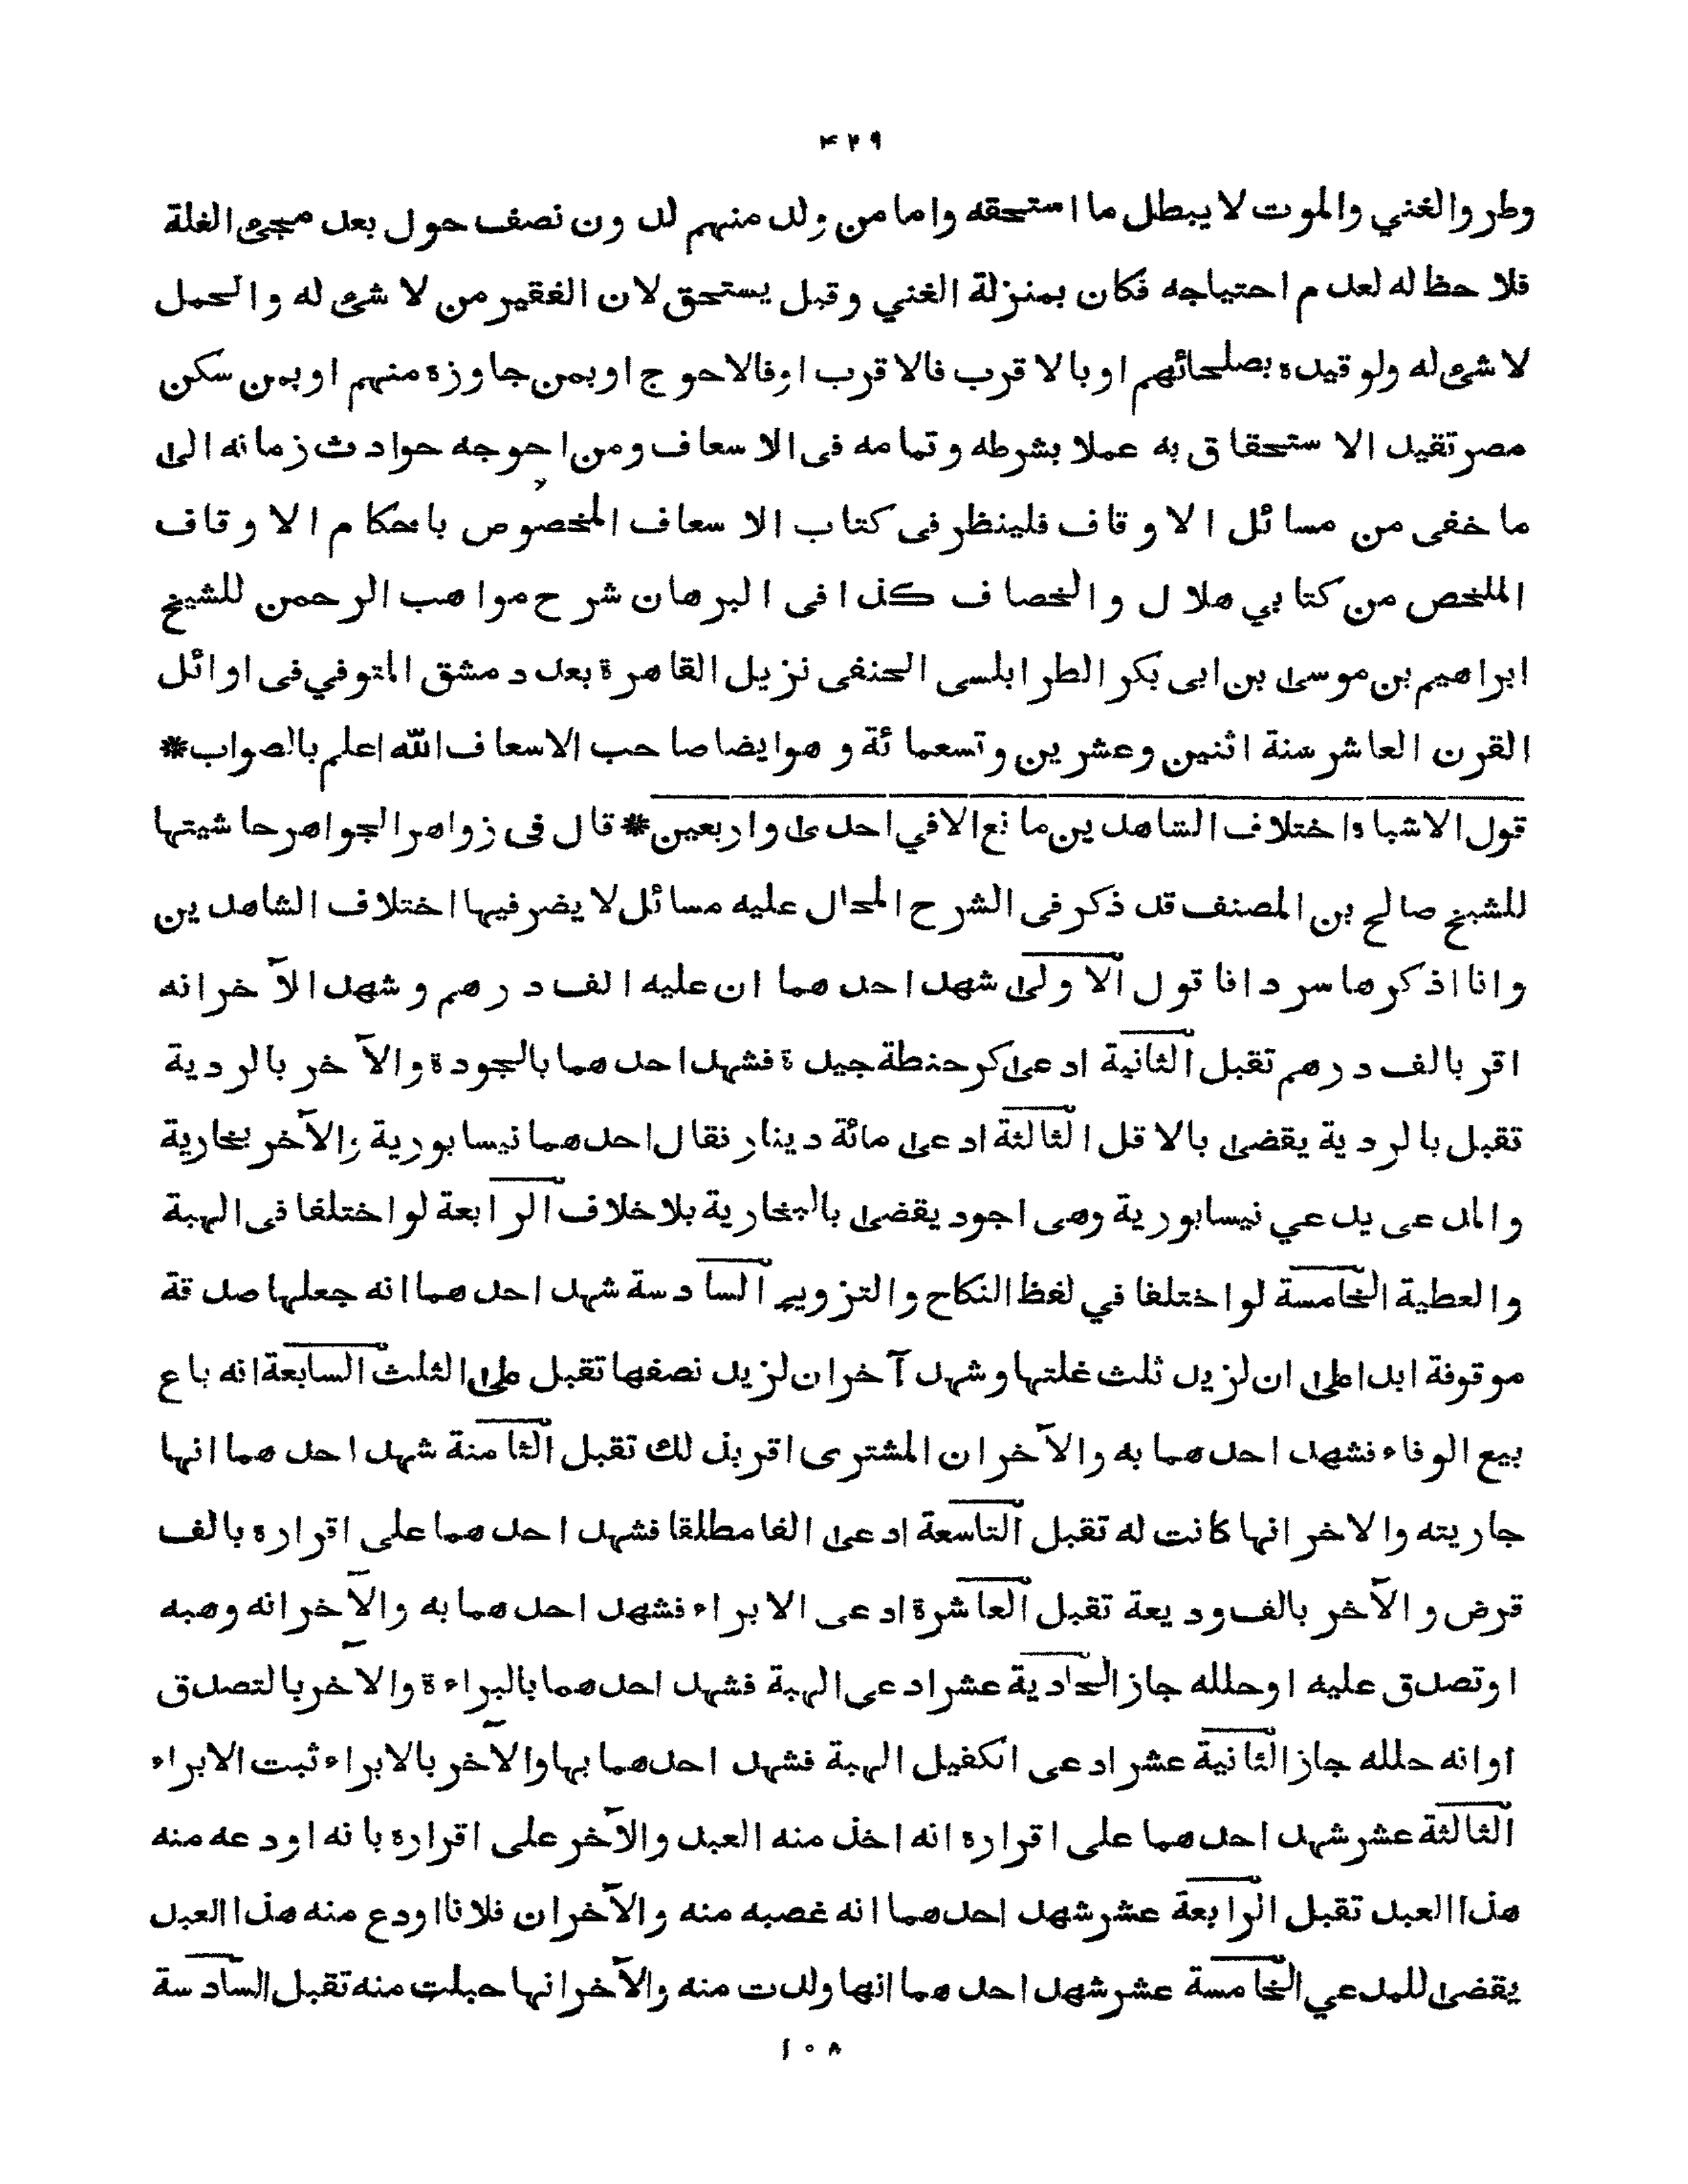 ۴۲۹
وطرو الغني والموت لا يبطل ما استحقه واما من ولد منهم لدون نصف حول بعد مجئ الغلة
فلا حظ له لعدم احتياجه فكان بمنزلة الغني وقيل يستحق لان الفقير من لا شئ له والحمل
لا شئ له ولو قيده بصلحائهم او بالاقرب فالاقرب او فالاحوج او بمن جاوزه منهم او بمن سكن
مصر تقيد الاستحقاق به عملا بشرطه وتمامه فى الاسعاف ومن احوجه حوادث زمانه الى
ما خفى من مسائل الاوقاف فلينظر فى كتاب الاسعاف المخصوص باحكام الاوقاف
الملخص من كتابي هلال والخصاف كذا فى البرهان شرح مواهب الرحمن للشيخ
ابراهيم بن موسى بن ابى بكر الطرابلسى الحنفى نزيل القاهرة بعد دمشق المتوفي فى اوائل
القرن العاشر سنة اثنين وعشرين وتسعمائة وهو ايضا صاحب الاسعاف الله اعلم بالصواب*
قول الاشباه اختلاف الشاهدين مانع الا في احدى واربعين* قال فى زواهر الجواهر حاشيتها
للشيخ صالح بن المصنف قد ذكر فى الشرح المحال عليه مسائل لا يضر فيها اختلاف الشاهدين
وانا اذكرها سردا فاقول الاولى شهد احدهما ان عليه الف درهم وشهد الآخر انه
اقر بالف درهم تقبل الثانية ادعى كر حنطة جيدة فشهد احدهما بالجودة والآخر بالردية
تقبل بالردية يقضى بالاقل الثالثة ادعى مائة دينار نقال احدهما نيسابورية والآخر بخارية
والمدعى يدعي نيسابورية وهى اجود يقضى بالبخارية بلا خلاف الرابعة لو اختلفا فى الهبة
والعطية الخامسة لو اختلفا في لفظ النكاح والتزويج السادسة شهد احدهما انه جعلها صدقة
موقوفة ابدا على ان لزيد ثلث غلتها وشهد آخر ان لزيد نصفها تقبل على الثلث السابعة انه باع
بيع الوفاء فشهد احدهما به والآخر ان المشترى اقر بذلك تقبل الثامنة شهد احدهما انها
جاريته والاخر انها كانت له تقبل التاسعة ادعى الفا مطلقا فشهد احدهما على اقراره بالف
قرض والآخر بالف وديعة تقبل العاشرة ادعى الابراء فشهد احدهما به والآخر انه وهبه
او تصدق عليه او حلله جاز الحادية عشر ادعى الهبة فشهد احدهما بالبراءة والآخر بالتصدق
او انه حلله جاز الثانية عشر ادعى الكفيل الهبة فشهد احدهما بها والآخر بالابراء ثبت الابراء
الثالثة عشر شهد احدهما على اقراره انه اخذ منه العبد والآخر على اقراره بانه اودعه منه
هذا العبد تقبل الرابعة عشر شهد احدهما انه غصبه منه والآخر ان فلانا اودع منه هذا العبد
يقضى للمدعي الخامسة عشر شهد احدهما انها ولدت منه والآخر انها حبلت منه تقبل السادسة
١٠٨